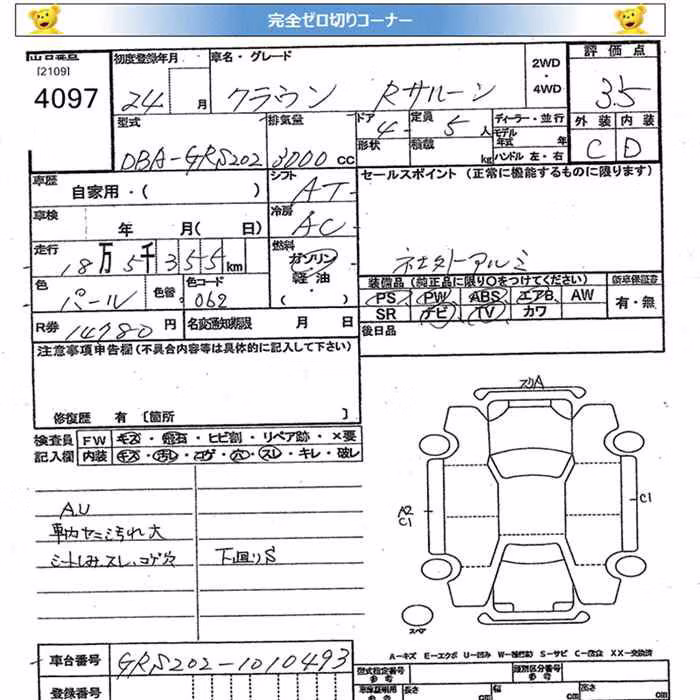 完全ゼロ切りコーナー
[2109]
4097
初度登録年月
24 月
車名・グレード
クラウン Rサルーン
2WD
・
4WD
評価点
3.5
外装 内装
C D
型式
DBA-GRS202
排気量
3000 cc
ドア
4
定員
5 人
形状
積載
kg
ディーラー・並行
モデル
年式 年
ハンドル 左・右
車歴
自家用・( )
シフト
AT
セールスポイント (正常に機能するものに限ります)
社外アルミ
車検
年 月( 日)
冷房
AC
走行
18万5千355km
燃料
ガソリン
軽油
・( )
色
パール
色替
色コード
062
装備品(純正品に限り○をつけてください)
PS PW ABS エアB AW
SR ナビ TV カワ
新車保証書
有・無
R券
14780 円
名変通知期限 月 日
後日品
注意事項申告欄 (不具合内容等は具体的に記入して下さい)
修復歴 有 [箇所 ]
検査員
記入欄
FW キズ・飛石・ヒビ割・リペア跡・×要
内装 キズ・汚レ・コゲ・穴・スレ・キレ・破レ
A,U
車内ヤニ汚れ大
シートしみ,スレ,コゲ穴
下回りS
スリA
A2
C1
C1
スペア
A-キズ E-エクボ U-凹み W-補修跡 S-サビ C-腐食 XX-交換済
車台番号
GRS202-1010493
登録番号
型式指定番号
参考
類別区分番号
参考
長さ
cm
幅
cm
高さ
cm